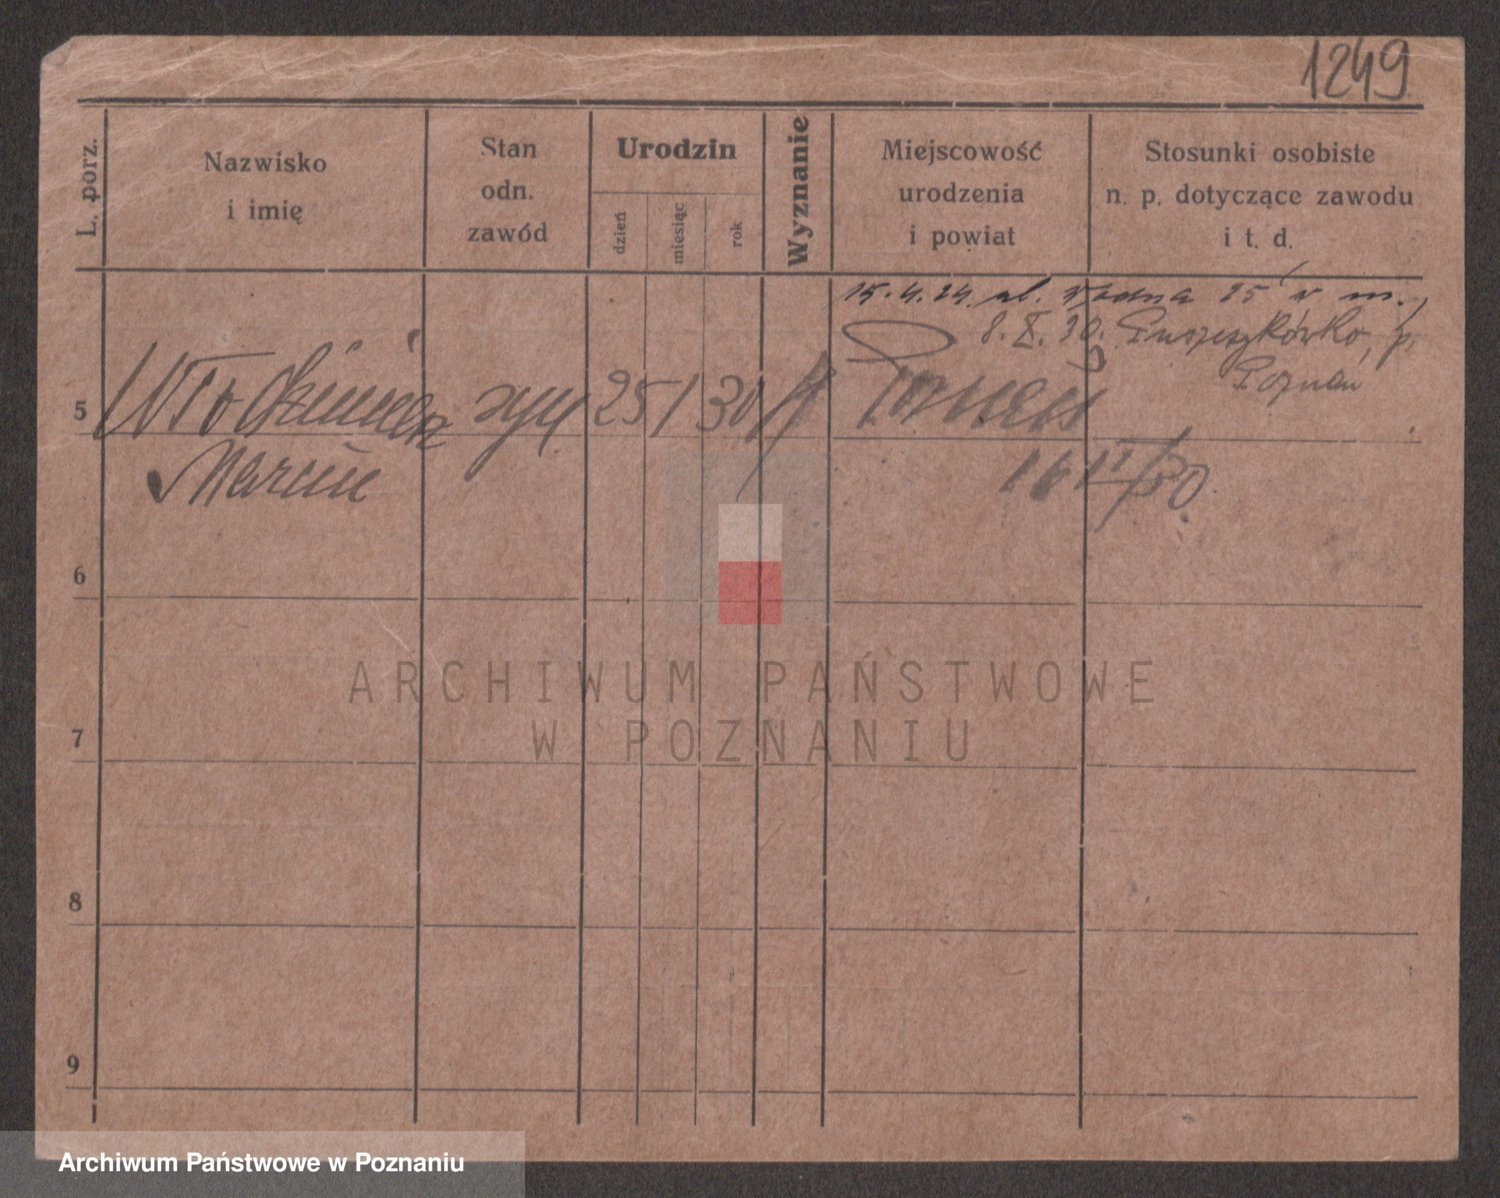 1249
L. porz.
Nazwisko
i imię
Stan
odn.
zawód
Urodzin
dzień
miesiąc
rok
Wyznanie
Miejscowość
urodzenia
i powiat
Stosunki osobiste
n. p. dotyczące zawodu
i t. d.
15.4.24. ul. Wodna 25 w m.,
8. X. 30. Puszczykówko, p.
Poznań
5 Włodzimierz syn 25/1 30 Poznań
Marcin
16 II/30.
6
7
8
9
ARCHIWUM PAŃSTWOWE
W POZNANIU
Archiwum Państwowe w Poznaniu